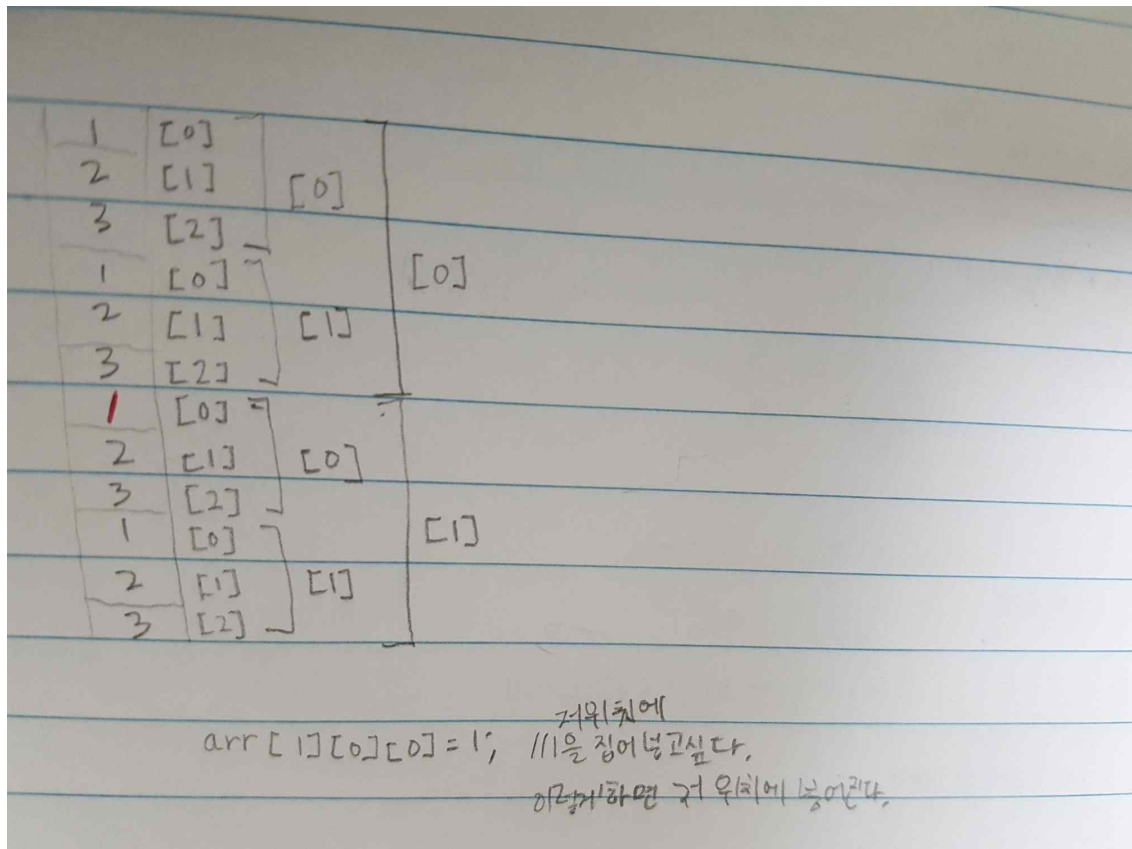 1 [0]
2 [1] [0]
3 [2]
1 [0] [0]
2 [1] [1]
3 [2]
1 [0]
2 [1] [0]
3 [2]
1 [0] [1]
2 [1] [1]
3 [2]
저위치에
arr[1][0][0]=1; //1을 집어넣고싶다.
이렇게하면 저 위치에 넣어진다.